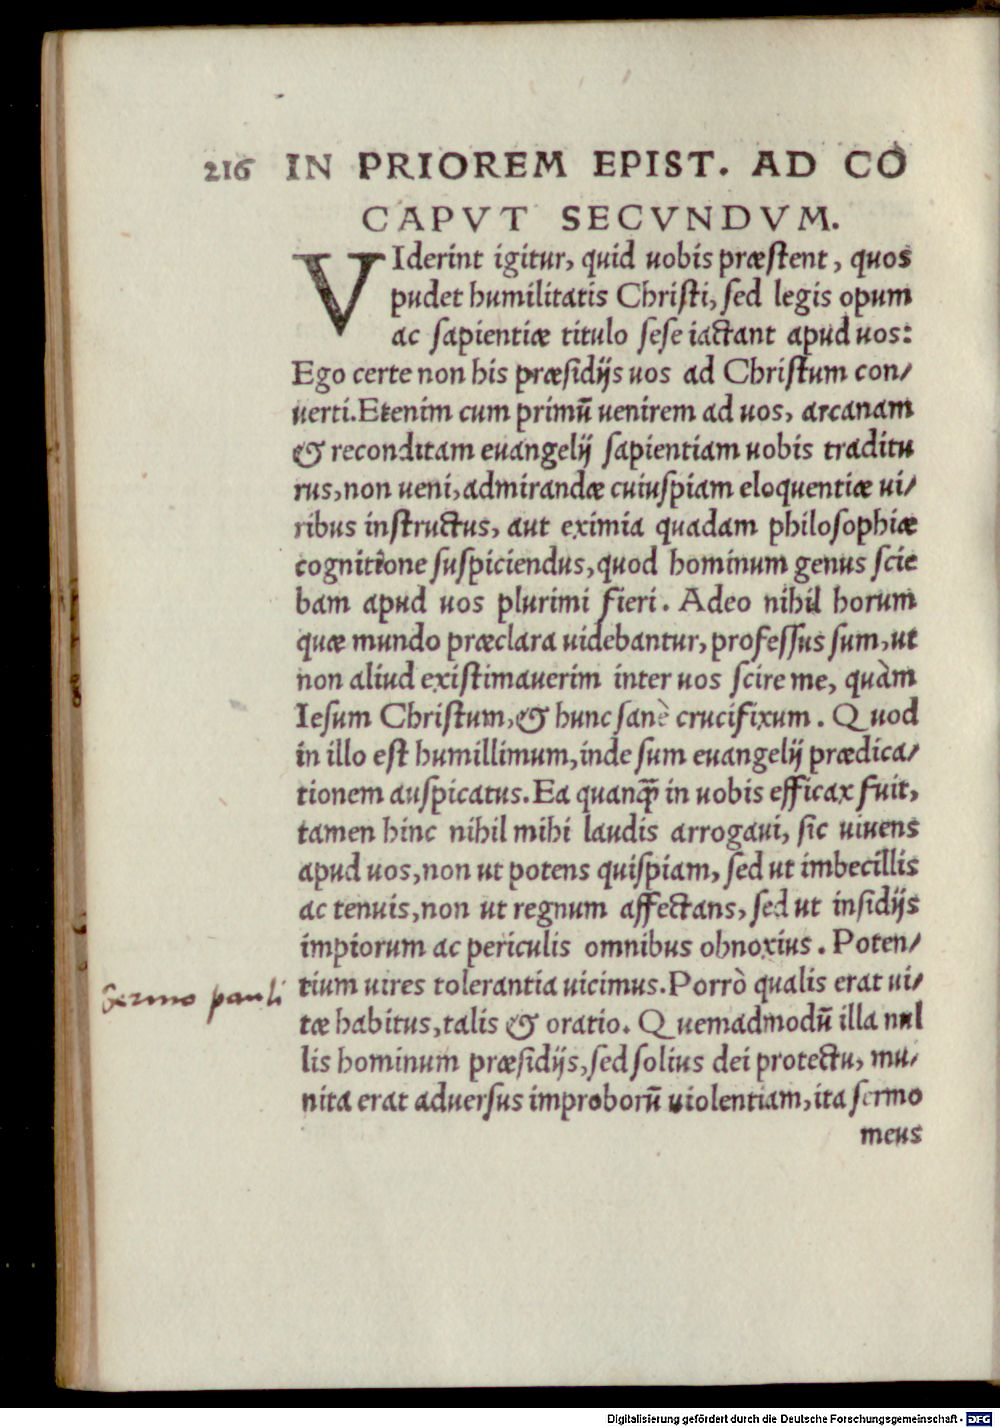 216 IN PRIOREM EPIST. AD CO
CAPVT SECVNDVM.
VIderint igitur, quid uobis præſtent, quos
pudet humilitatis Chriſti, ſed legis opum
ac ſapientiæ titulo ſeſe iactant apud uos:
Ego certe non his præſidijs uos ad Chriſtum con/
uerti. Etenim cum primū uenirem ad uos, arcanam
& reconditam euangelij ſapientiam uobis traditu
rus, non ueni, admirandæ cuiuſpiam eloquentiæ ui/
ribus inſtructus, aut eximia quadam philoſophiæ
cognitione ſuſpiciendus, quod hominum genus ſcie
bam apud uos plurimi fieri. Adeo nihil horum
quæ mundo præclara uidebantur, profeſſus ſum, ut
non aliud exiſtimauerim inter uos ſcire me, quàm
Ieſum Chriſtum, & hunc ſanè crucifixum. Quod
in illo eſt humillimum, inde ſum euangelij prædica/
tionem auſpicatus. Ea quanꝙ̄ in uobis efficax fuit,
tamen hinc nihil mihi laudis arrogaui, ſic uiuens
apud uos, non ut potens quiſpiam, ſed ut imbecillis
ac tenuis, non ut regnum affectans, ſed ut inſidijs
impiorum ac periculis omnibus obnoxius. Poten/
Sermo pauli
tium uires tolerantia uicimus. Porrò qualis erat ui/
tæ habitus, talis & oratio. Quemadmodū illa nul
lis hominum præſidijs, ſed ſolius dei protectu, mu/
nita erat aduerſus improborū uiolentiam, ita ſermo
meus
Digitalisierung gefördert durch die Deutsche Forschungsgemeinschaft - DFG